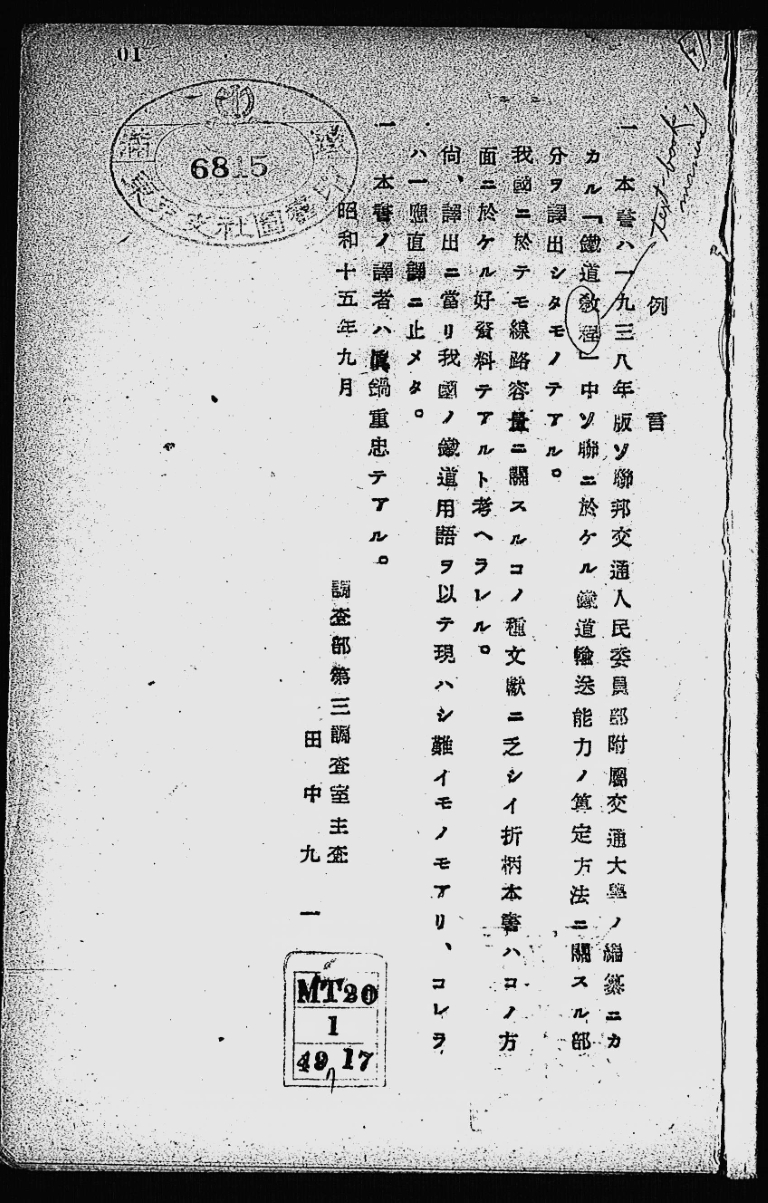 例言
一 本書ハ一九三八年版ソ聯邦交通人民委員部附屬交通大學ノ編纂ニカ
カル「鐵道敎程」中ソ聯ニ於ケル鐵道輸送能力ノ算定方法ニ關スル部
分ヲ譯出シタモノテアル。
我國ニ於テモ線路容量ニ關スルコノ種文獻ニ乏シイ折柄本書ハコノ方
面ニ於ケル好資料テアルト考ヘラレル。
尙、譯出ニ當リ我國ノ鐵道用語ヲ以テ現ハシ難イモノモアリ、コレラ
ハ一應直譯ニ止メタ。
一 本書ノ譯者ハ眞鍋重忠テアル。
昭和十五年九月
調査部第三調査室主査
田中九一
text book,
manual
01
6815
MT20
1
49 17